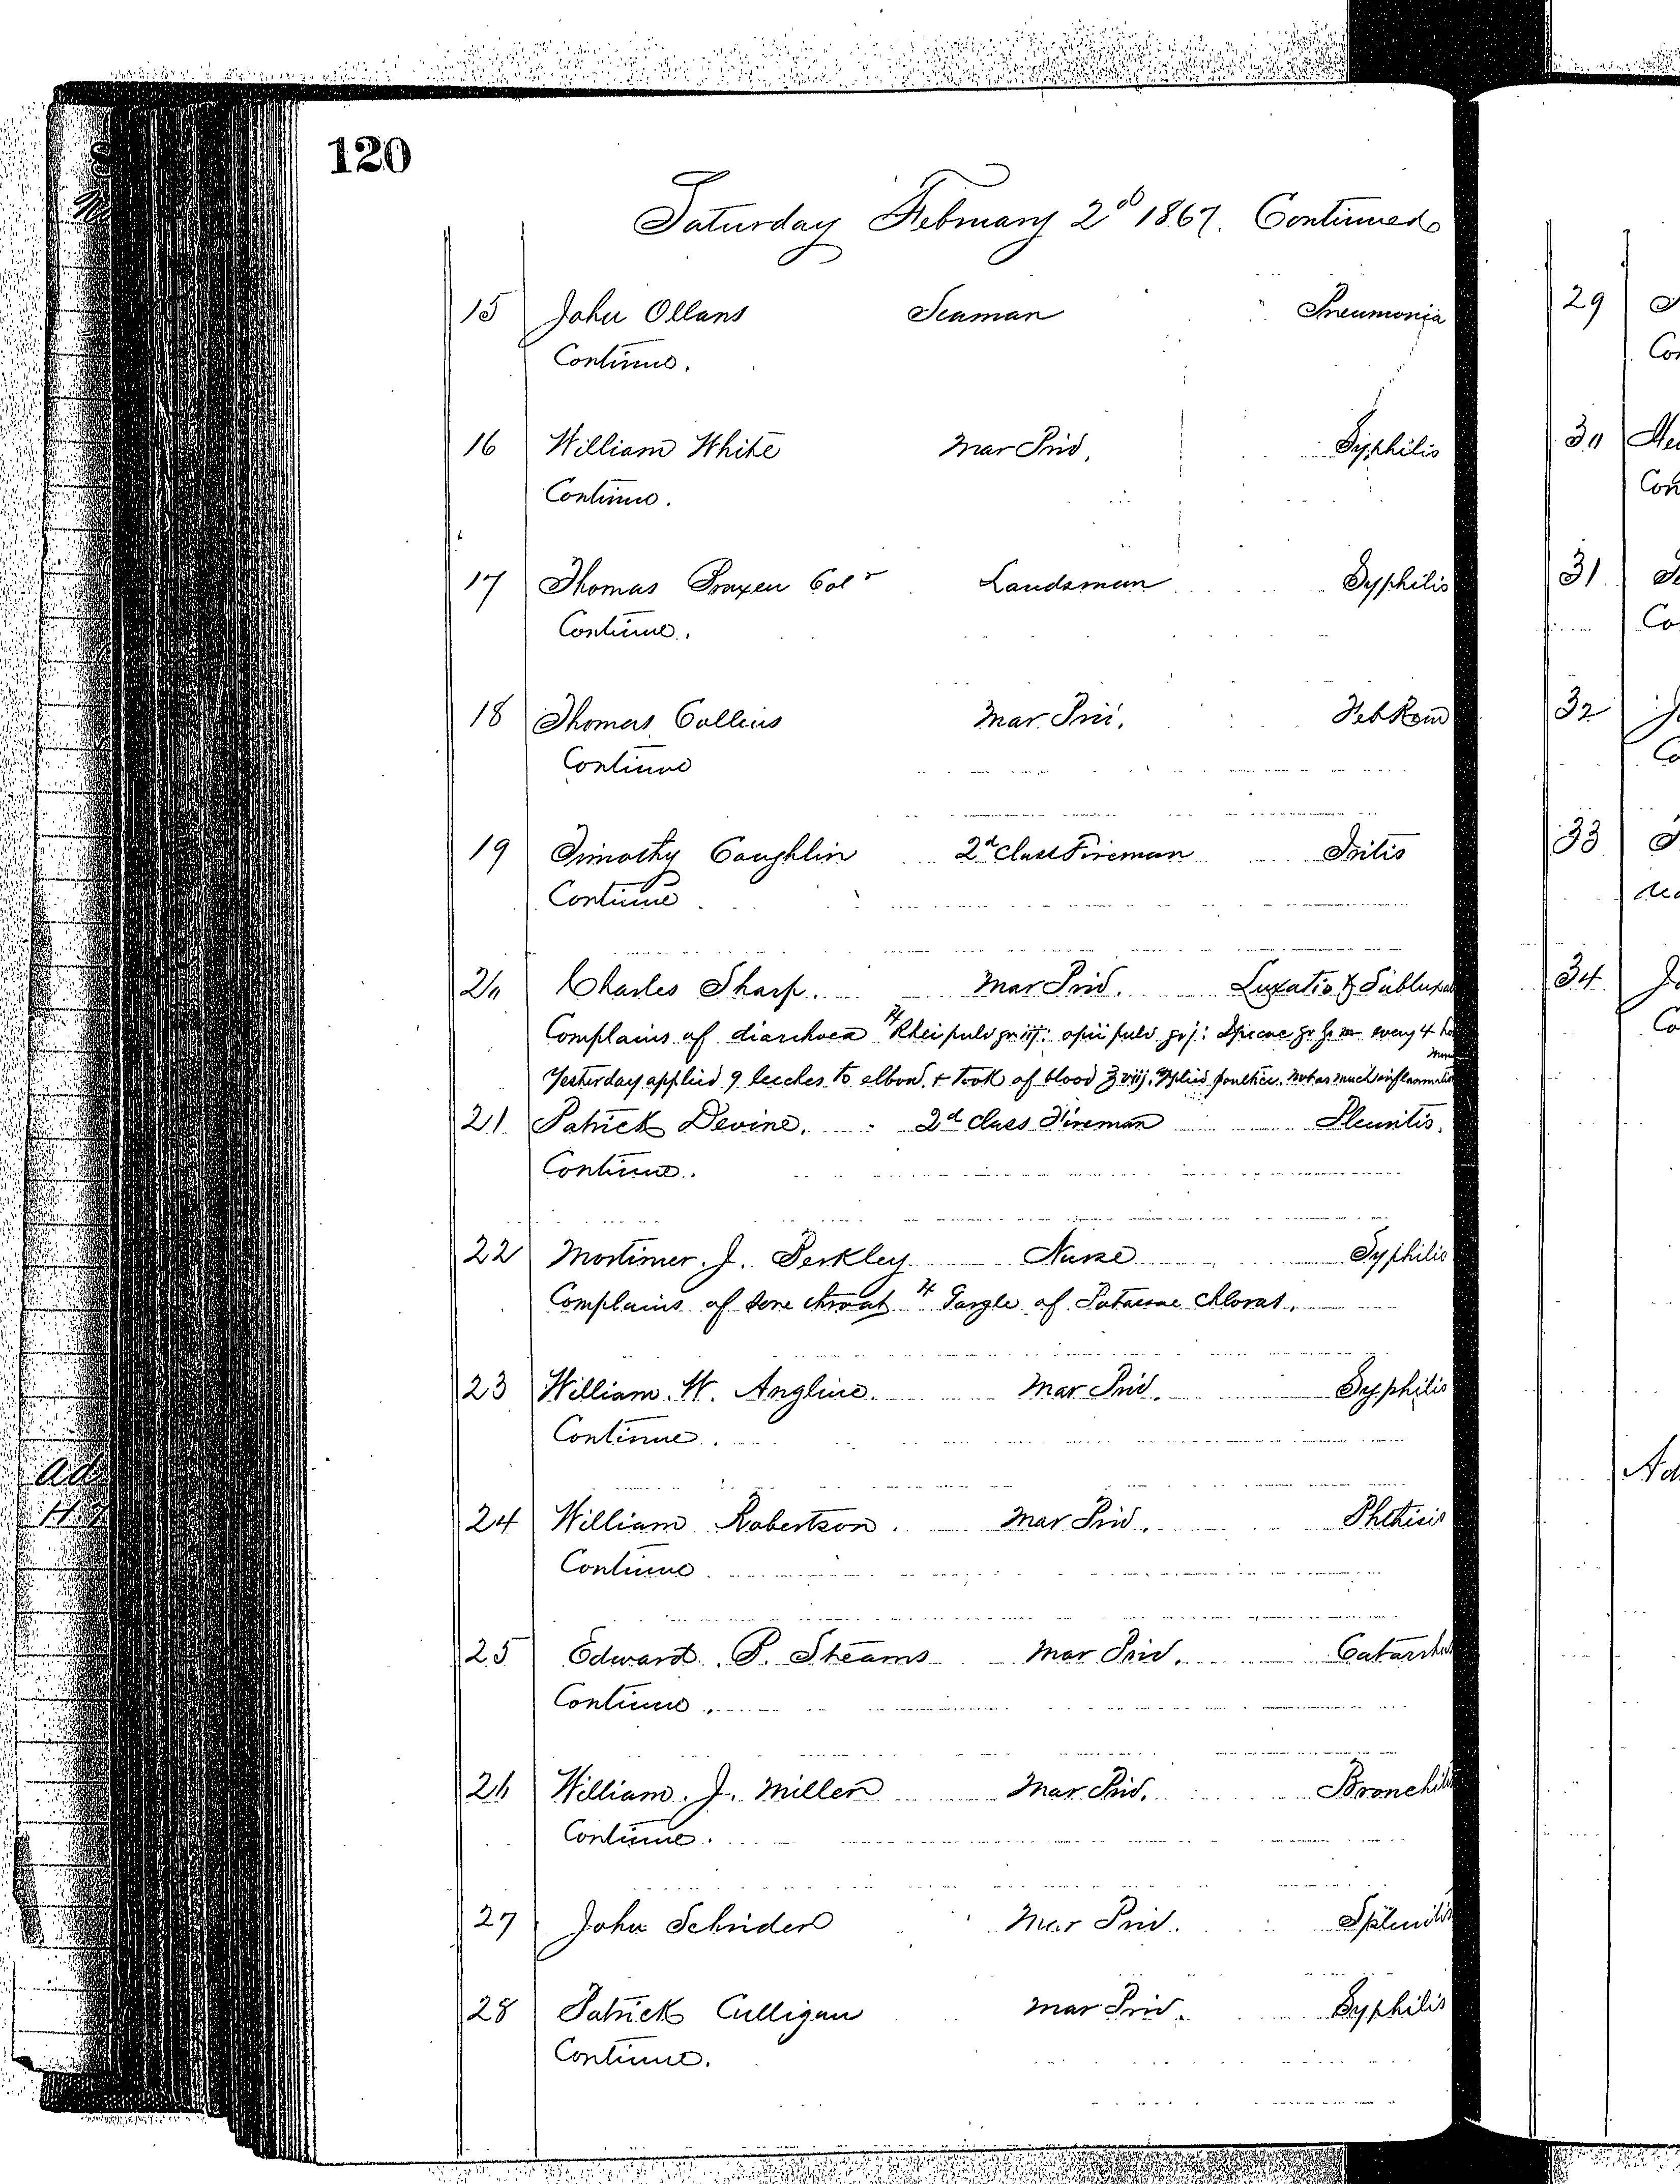 120
Saturday February 2d 1867. Continued
15 John Ollans Seaman Pneumonia
Continue.
16 William White Mar Priv. Syphilis
Continue.
17 Thomas Col'd Landsman Syphilis
Continue.
18 Thomas Collins Mar Priv. Feb Rem
Continue
19 Timothy Coughlin 2d Class Fireman Iritis
Continue
20 Charles Sharp. Mar Priv. Luxatio &
Complains of diarrhoea ℞ Rhei pulv opii pulv grj: Ipecac every 4
Yesterday applied 9 leeches to elbow, & took of blood ℥viij. Applied poultice. Not as much inflammation
21 Patrick Devine. 2d class Fireman Pleuritis.
Continue.
22 Mortimer. J. Berkley Nurse Syphilis
Complains of sore throat ℞ Gargle of Potassae Chlorat.
23 William. W. Angline. Mar Priv. Syphilis
Continue.
24 William Robertson. Mar Priv. Phthisis
Continue
25 Edward. P. Stearns Mar Priv. Catarrhus
Continue.
26 William. J. Miller Mar Priv. Bronchitis
Continue.
27 John Schrider Mar Priv. Splenitis
28 Patrick Culligan Mar Priv. Syphilis
Continue.
Ad
29
30
Con
31
Co
32
Co
33
34
Co
Ad